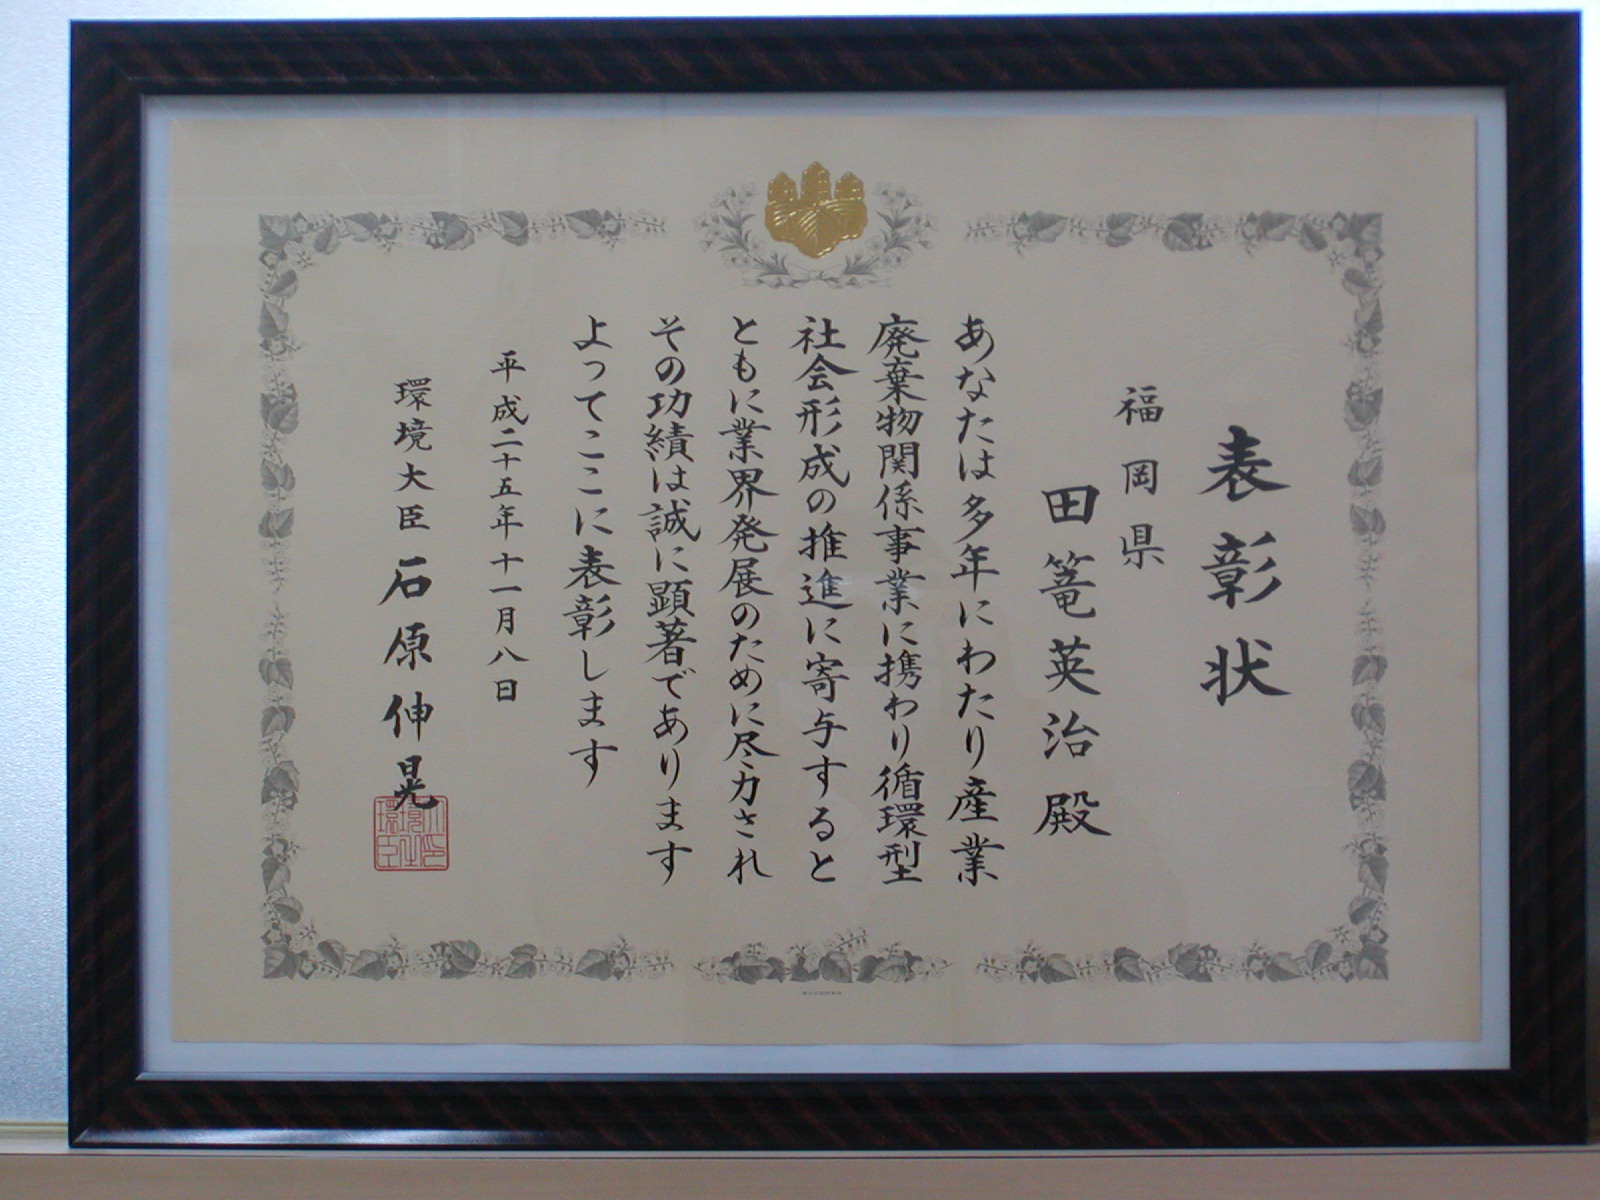 表彰状
福岡県
田篭英治殿
あなたは多年にわたり産業
廃棄物関係事業に携わり循環型
社会形成の推進に寄与すると
ともに業界発展のために尽力され
その功績は誠に顕著であります
よってここに表彰します
平成二十五年十一月八日
環境大臣石原伸晃